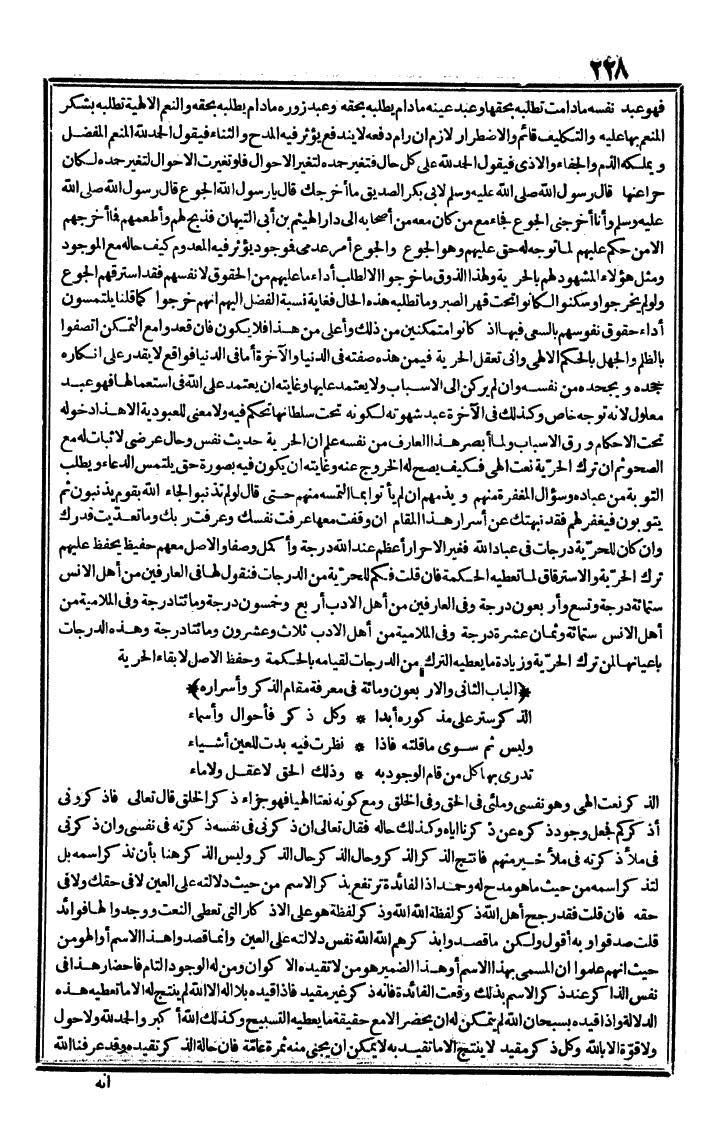 ٢٢٨
فهو عبد نفسه مادامت تطلبه بحقها وعبد عينه مادام يطلبه بحقه وعبد زوره مادام يطلبه بحقه والنعم الالهية تطلبه بشكر
المنعم بها عليه والتكليف قائم والاضطرار لازم ان رام دفعه لا يندفع يؤثر فيه المدح والثناء فيقول الحمد لله المنعم المفضل
ويملكه الذم والجفاء والاذى فيقول الحمد لله على كل حال فتغير حمده لتغير الاحوال فلو تغيرت الاحوال لتغير حمده لكان
حرا عنها قال رسول الله صلى الله عليه وسلم لابى بكر الصديق ما أخرجك قال يا رسول الله الجوع قال رسول الله صلى الله
عليه وسلم وأنا أخرجنى الجوع فجاء مع من كان معه من أصحابه الى دار الهيثم بن أبى التيهان فذبح لهم وأطعمهم فما أخرجهم
الا من حكم عليهم لما توجه له حق عليهم وهو الجوع والجوع أمر عدمى فوجود يؤثر فيه المعدوم كيف حاله مع الموجود
ومثل هؤلاء المشهود لهم بالحرية ولهذا الذوق ما خرجوا الا لطلب أداء ما عليهم من الحقوق لانفسهم فقد استرقهم الجوع
ولو لم يخرجوا وسكنوا لكانوا تحت قهر الصبر وما تطلبه هذه الحال فغاية نسبة الفضل اليهم انهم خرجوا كما قلنا يلتمسون
أداء حقوق نفوسهم بالسعى فيها اذ كانوا متمكنين من ذلك وأعلى من هذا فلا يكون فان قعدوا مع التمكن اتصفوا
بالظلم والجهل بالحكم الالهى وانى تعقل الحرية فيمن هذه صفته فى الدنيا والآخرة أما فى الدنيا فواقع لا يقدر على انكاره
نجده ويجحده من نفسه وان لم يركن الى الاسباب ولا يعتمد عليها وغايته ان يعتمد على الله فى استعمالها فهو عبد
معلول لانه توجه خاص وكذلك فى الآخرة عبد شهوته لكونه تحت سلطانها تحكم فيه ولا معنى للعبودية الا هذا دخوله
تحت الاحكام ورق الاسباب ولما أبصر هذا العارف من نفسه علم ان الحرية حديث نفس وحال عرضى لا ثبات له مع
الصحو ثم ان ترك الحرية نعت الهى فكيف يصح له الخروج عنه وغايته ان يكون فيه بصورة حق يلتمس الدعاء ويطلب
التوبة من عباده وسؤال المغفرة منهم ويذمهم ان لم يأتوا بما التمسه منهم حتى قال لو لم تذنبوا لجاء الله بقوم يذنبون ثم
يتوبون فيغفر لهم فقد نبهتك عن أسرار هذا المقام ان وقفت معها عرفت نفسك وعرفت ربك وما تعديت قدرك
وان كان للحرية درجات فى عباد الله فغير الاحرار أعظم عند الله درجة وأكمل وصفا والاصل معهم حفيظ يحفظ عليهم
ترك الحرية والاسترقاق لما تعطيه الحكمة فان قلت فكم للحرية من الدرجات فنقول لها فى العارفين من أهل الانس
ستمائة درجة وتسع وأربعون درجة وفى العارفين من أهل الادب أربع وخمسون درجة ومائتا درجة وفى الملامية من
أهل الانس ستمائة وثمان عشرة درجة وفى الملامية من أهل الادب ثلاث وعشرون ومائتا درجة وهذه الدرجات
باعيانها لمن ترك الحرية وزيادة ما يعطيه الترك من الدرجات لقيامه بالحكمة وحفظ الاصل لابقاء الحرية
﴿الباب الثانى والاربعون ومائة فى معرفة مقام الذكر وأسراره﴾
الذكر ستر على مذكوره أبدا * وكل ذكر فأحوال وأسماء
وليس ثم سوى ما قلته فاذا * نظرت فيه بدت للعين أشياء
تدرى بها كل من قام الوجود به * وذلك الحق لا عقل ولا ماء
الذكر نعت الهى وهو نفسى وملئى فى الحق وفى الخلق ومع كونه نعتا الهيا فهو جزاء ذكر الخلق قال تعالى فاذكرونى
أذكركم فجعل وجود ذكره عن ذكرنا اياه وكذلك حاله فقال تعالى ان ذكرنى فى نفسه ذكرته فى نفسى وان ذكرنى
فى ملأ ذكرته فى ملأ خير منهم فانتج الذكر الذكر وحال الذكر حال الذكر وليس الذكر هنا بأن تذكر اسمه بل
لتذكر اسمه من حيث ما هو مدح له وحمد اذ الفائدة ترتفع بذكر الاسم من حيث دلالته على العين لا فى حقك ولا فى
حقه فان قلت فقد رجح أهل الله ذكر لفظة الله الله وذكر لفظة هو على الاذكار التى تعطى النعت ووجدوا لها فوائد
قلت صدقوا وبه أقول ولكن ما قصدوا بذكرهم الله الله نفس دلالته على العين وانما قصدوا هذا الاسم أو الهو من
حيث انهم علموا ان المسمى بهذا الاسم أو هذا الضمير هو من لا تقيده الاكوان ومن له الوجود التام فاحضار هذا فى
نفس الذاكر عند ذكر الاسم بذلك وقعت الفائدة فانه ذكر غير مقيد فاذا قيده بلا اله الا الله لم ينتج له الا ما تعطيه هذه
الدلالة واذا قيده بسبحان الله لم يتمكن له ان يحضر الا مع حقيقة ما يعطيه التسبيح وكذلك الله أكبر والحمد لله ولا حول
ولا قوة الا بالله وكل ذكر مقيد لا ينتج الا ما تقيد به لا يمكن ان يجنى منه ثمرة عامة فان حالة الذكر تقيده وقد عرفنا الله
انه